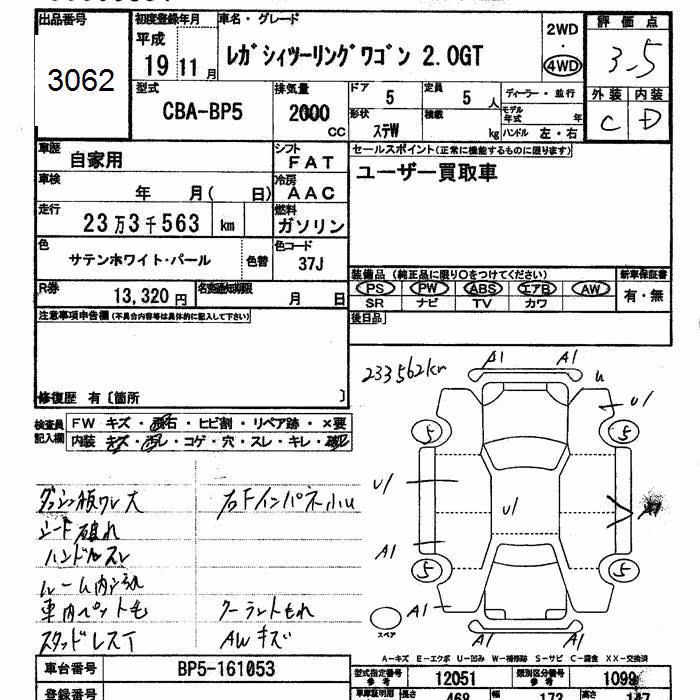 出品番号 初度登録年月 車名・グレード 評価点
3062 平成 19 11月 レガシィツーリングワゴン 2.0GT 2WD・4WD 3.5
型式 排気量 ドア 定員 ディーラー・並行 外装 内装
CBA-BP5 2000 CC 5 5人 モデル年式 年 C D
形状 ステW 積載 kg ハンドル 左・右
車歴 自家用 シフト FAT セールスポイント(正常に機能するものに限ります)
車検 年 月( 日) 冷房 AAC ユーザー買取車
走行 23万3千563 km 燃料 ガソリン
色 サテンホワイト・パール 色替 色コード 37J
装備品 (純正品に限り〇をつけてください) 新車保証書
R券 13,320円 名変通知期限 月 日 PS PW ABS エアB AW 有・無
SR ナビ TV カワ
注意事項申告欄(不具合内容等は具体的に記入して下さい) 後日品
233562km A1 A1
修復歴 有〔箇所 〕 u u1
検査員記入欄 FW キズ・飛石・ヒビ割・リペア跡・×要
内装 キズ・汚レ・コゲ・穴・スレ・キレ・破レ
5 5
ダッシュ板ワレ大 右Fインパネ小u u1 u1
シート破れ
ハンドルスレ A1
ルーム内汚れ 5 5
車内ペット毛 クーラントもれ A1
スタッドレスT AWキズ スペア A1 A1
A-キズ E-エクボ U-凹み W-補修跡 S-サビ C-腐食 XX-交換済
車台番号 BP5-161053 型式指定番号 参考 12051 類別区分番号 参考 1099
登録番号 長さ 468 幅 173 高さ 147